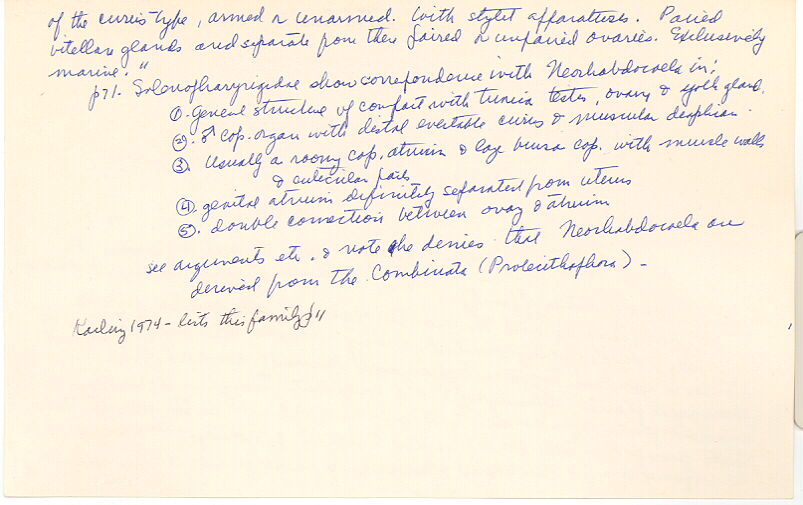 of the cirrus-type, armed or unarmed. With stylet apparatuses. Paired
vitellan glands and separate from then paired or unpaired ovaries. Exclusively
marine."
p71. Solenopharyngidae show correspondence with Neorhabdocoela in;
①. general structure of con part with tunica testes, ovary & yolk gland.
②. ♂ cop. organ with distal evertable cirrus & muscular
③. Usually a roomy cop. atrium & large bursa cop. with muscle walls
& cuticular
④ genital atrium definitely separated from uterus
⑤. double connection between ovary & atrium
see arguments etc. & note he denies that Neorhabdocoela are
derived from the Combinata (Prolecithophora) -
Karling 1974 - lists this family